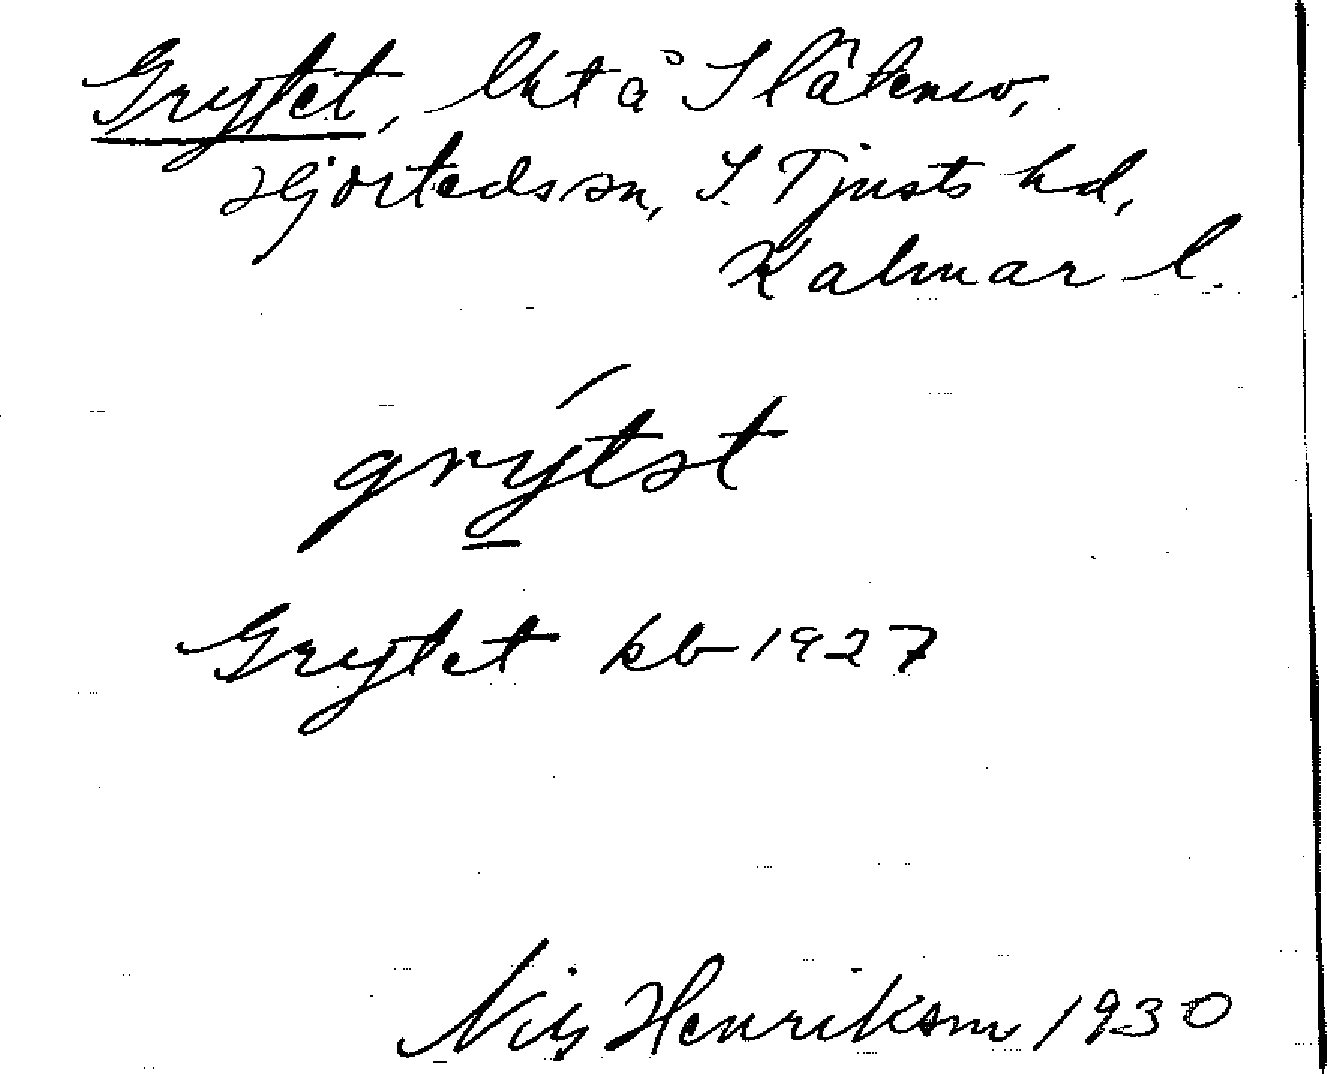 Grytet, lht å Slåtemo,
Hjorteds sn, S. Tjusts hd,
Kalmar l.
grýtət
Grytet kb 1927
Nils Henrikson 1930